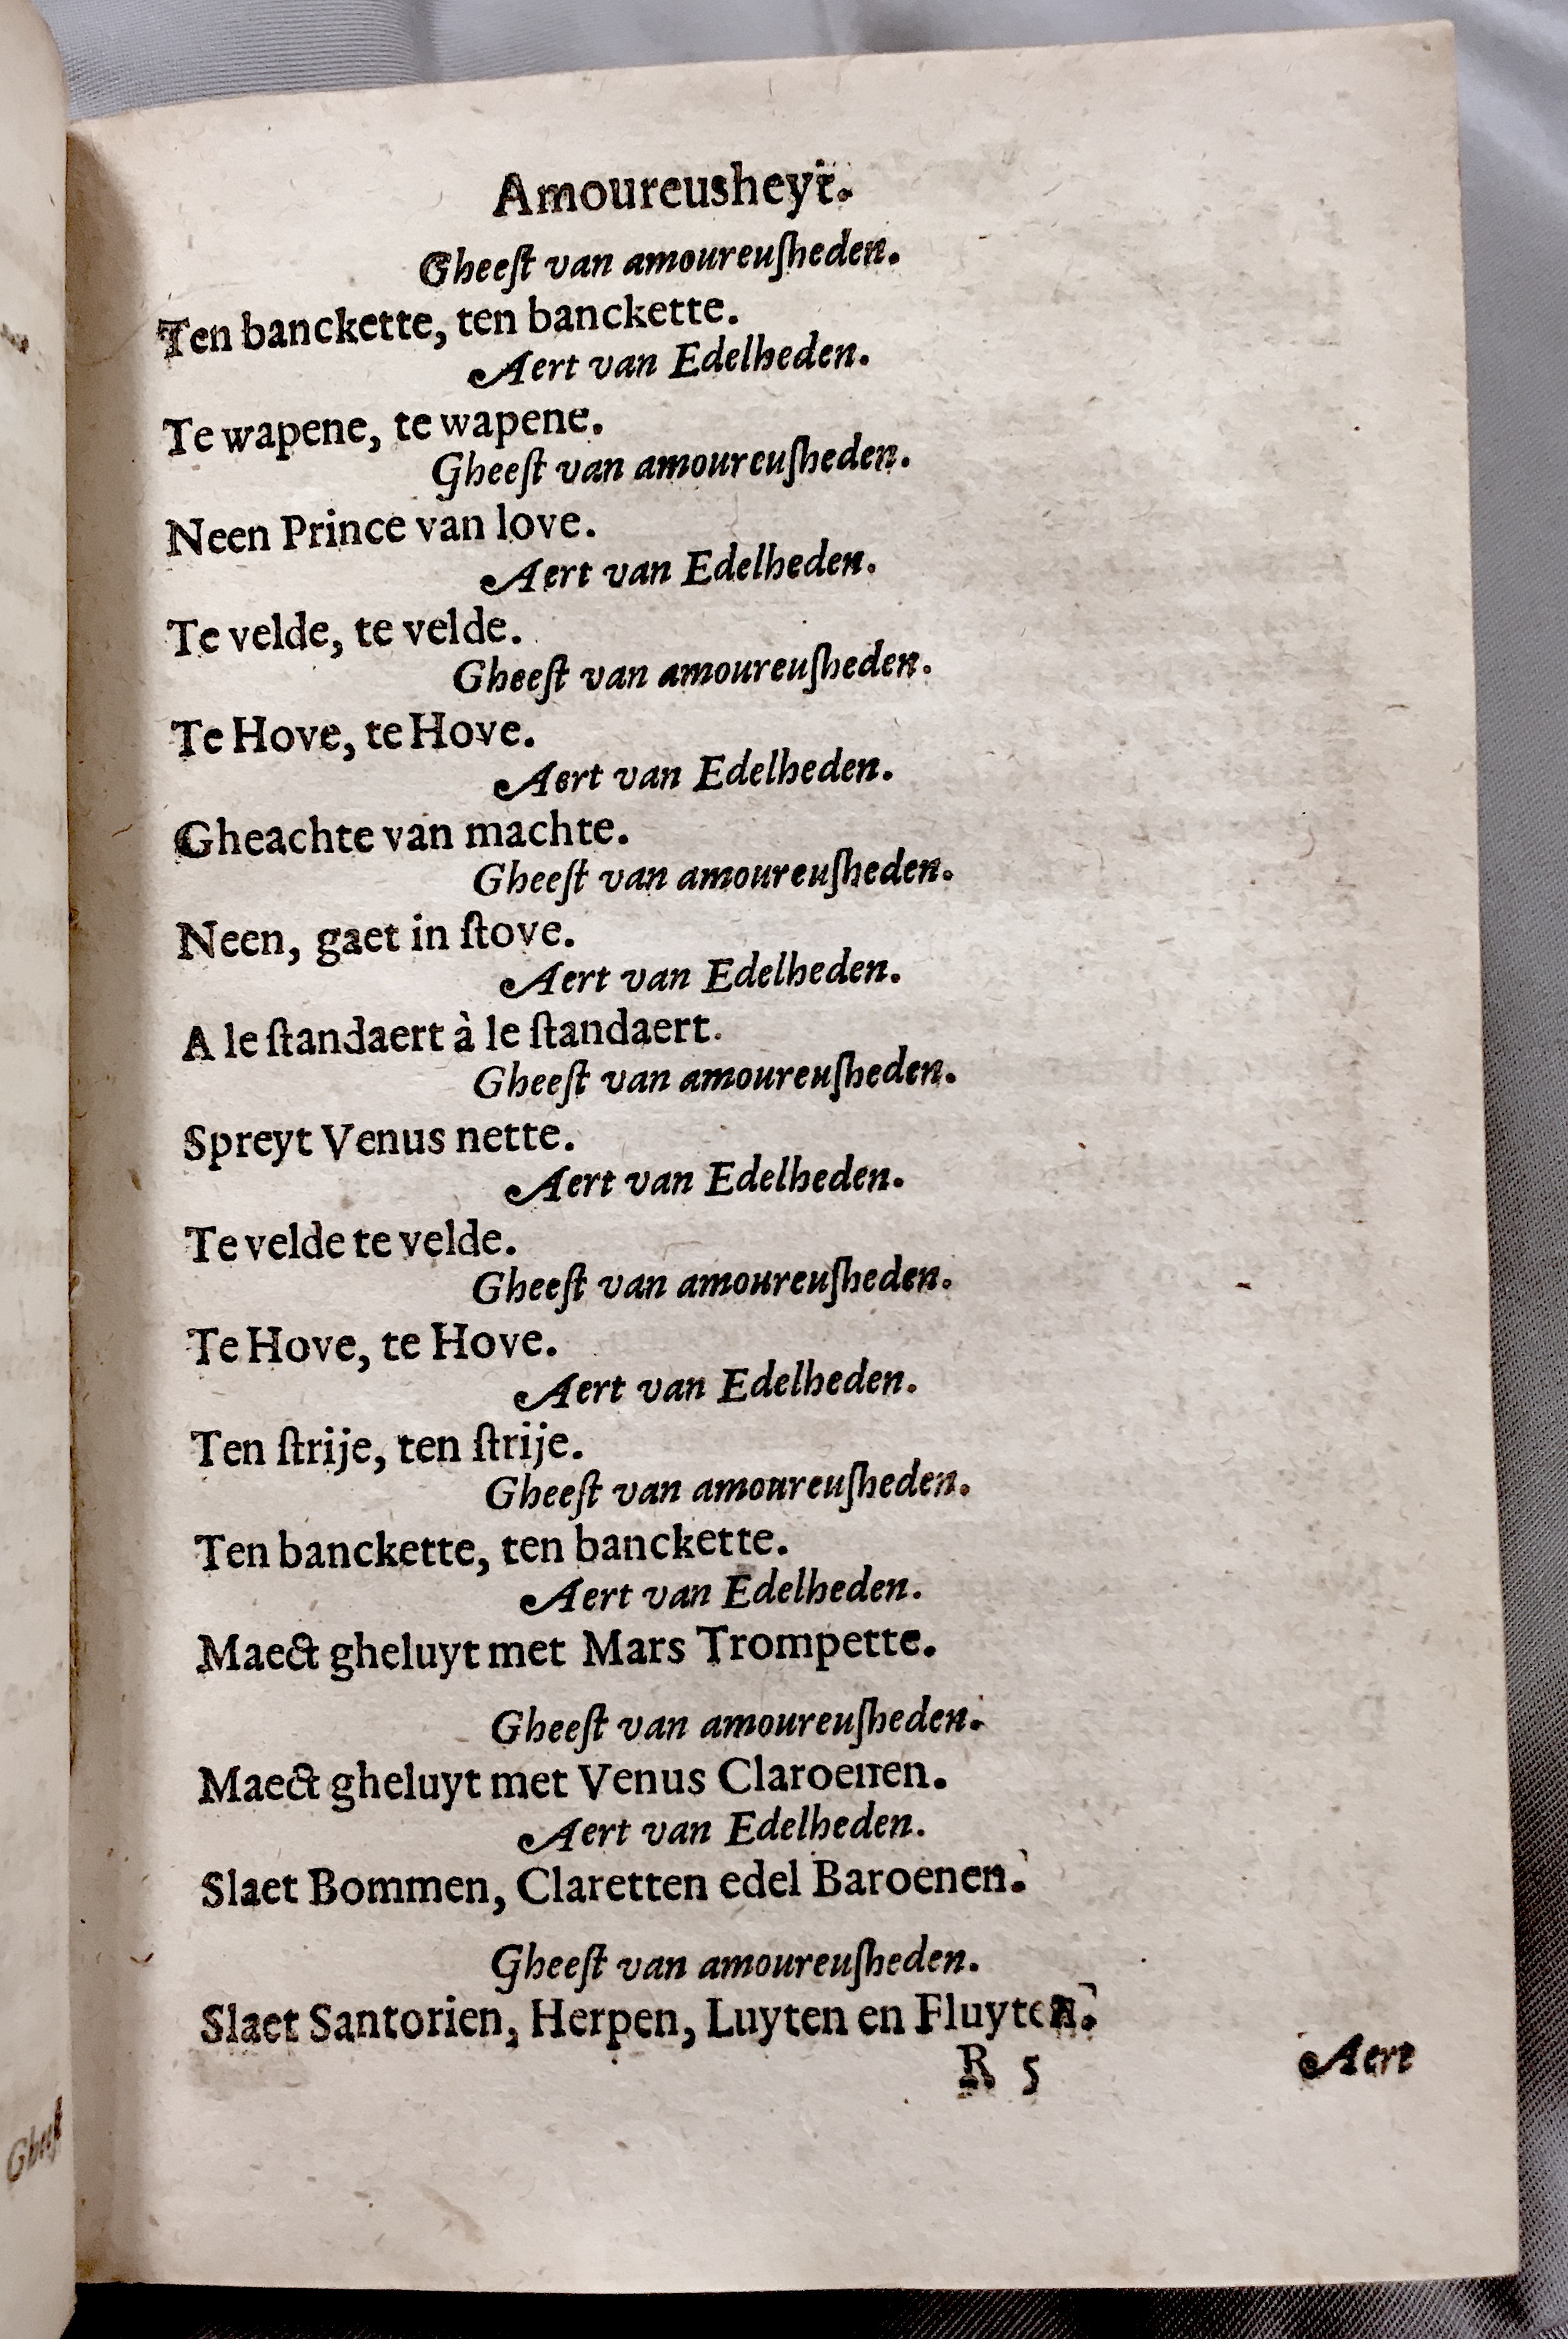 Amoureusheyt.
Gheeſt van amoureuſheden.
Ten banckette, ten banckette.
Aert van Edelheden.
Te wapene, te wapene.
Gheeſt van amoureuſheden.
Neen Prince van love.
Aert van Edelheden.
Te velde, te velde.
Gheeſt van amoureuſheden.
Te Hove, te Hove.
Aert van Edelheden.
Gheachte van machte.
Gheeſt van amoureuſheden.
Neen, gaet in ſtove.
Aert van Edelheden.
A le ſtandaert à le ſtandaert.
Gheeſt van amoureuſheden.
Spreyt Venus nette.
Aert van Edelheden.
Te velde te velde.
Gheeſt van amoureuſheden.
Te Hove, te Hove.
Aert van Edelheden.
Ten ſtrije, ten ſtrije.
Gheeſt van amoureuſheden.
Ten banckette, ten banckette.
Aert van Edelheden.
Maect gheluyt met Mars Trompette.
Gheeſt van amoureuſheden.
Maect gheluyt met Venus Claroenen.
Aert van Edelheden.
Slaet Bommen, Claretten edel Baroenen.
Gheeſt van amoureuſheden.
Slaet Santorien, Herpen, Luyten en Fluyten.
R 5
Aert